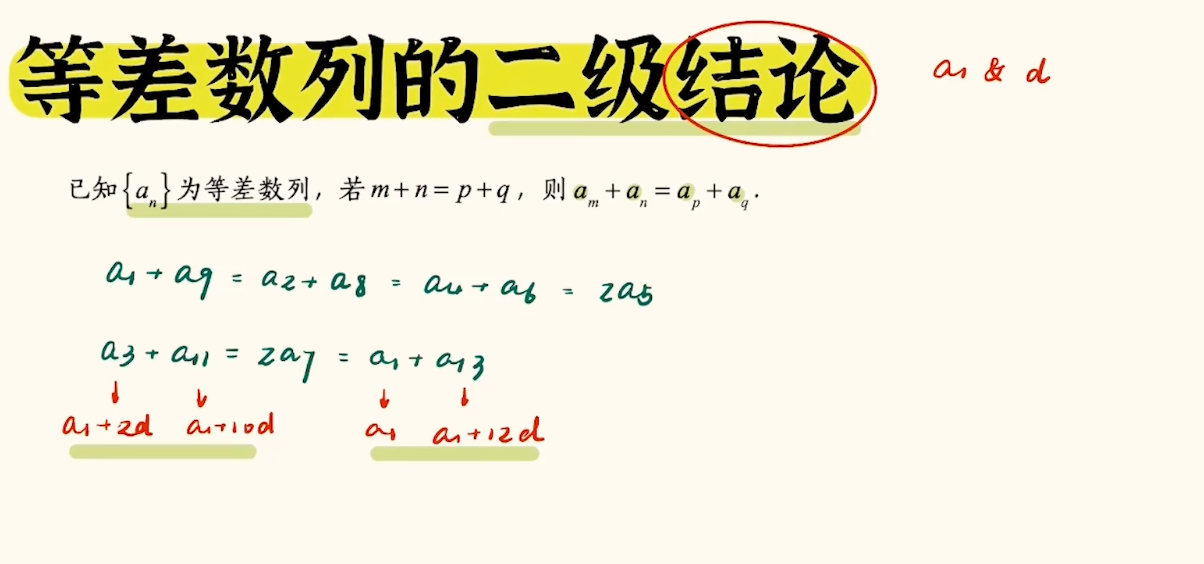 等差数列的二级结论
a₁ & d
已知{aₙ}为等差数列，若m+n=p+q，则aₘ+aₙ=aₚ+a_q.
a₁+a₉=a₂+a₈=a₄+a₆=2a₅
a₃+a₁₁=2a₇=a₁+a₁₃
↓ ↓ ↓ ↓
a₁+2d a₁+10d a₁ a₁+12d